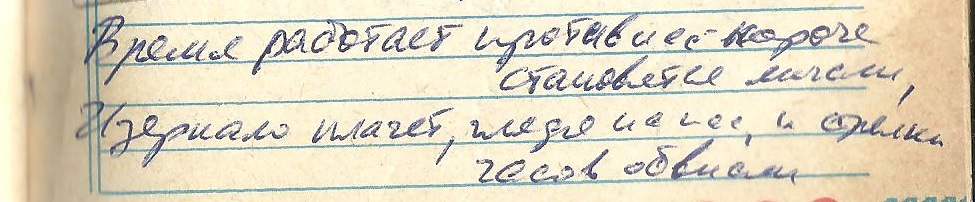 Время работает против нас - короче
становятся мысли,
И зеркало плачет, глядя на нас, и стрелки
часов обвисли